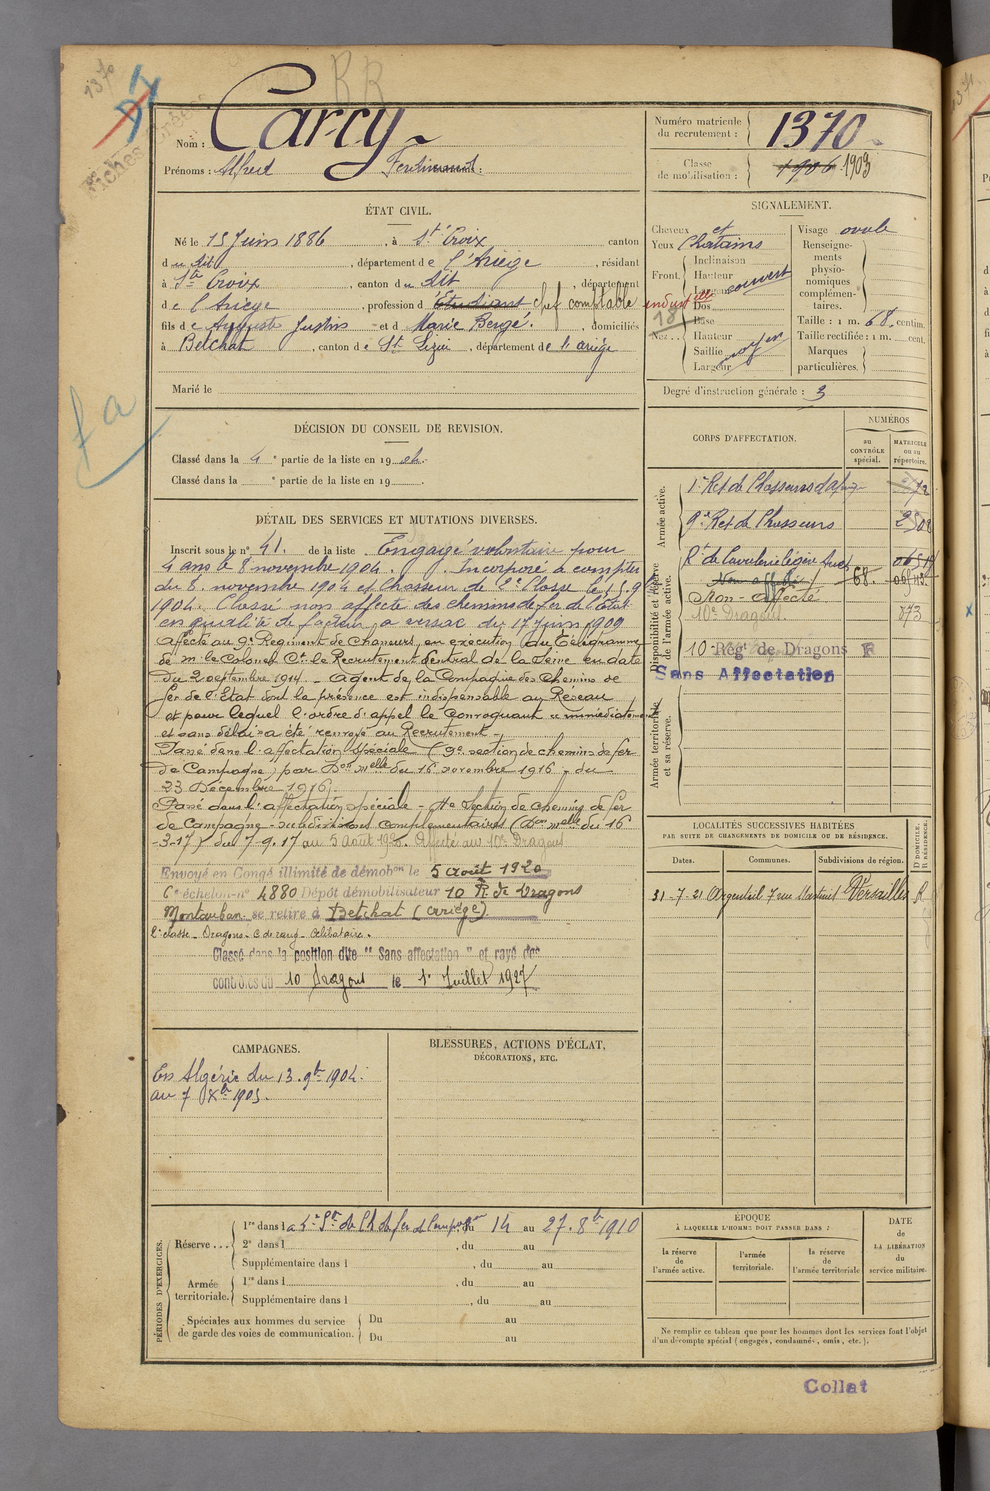 1370
RR
Nom : Carcy
Prénoms : Alfred Ferdinand.
Numéro matricule du recrutement : 1370
Classe de mobilisation : 1906 1903
ÉTAT CIVIL.
Né le 15 Juin 1886, à Ste Croix canton
du dit, département de l'Ariège, résidant
à Ste Croix, canton du dit, département
de l'Ariège, profession d'Etudiant chef comptable industrielle
fils de Auguste Justin et d Marie Bergé, domiciliés
à Betchat, canton de St Lizier, département de l'ariège
Marié le
SIGNALEMENT.
Cheveux et
Yeux Chatains
Front
Inclinaison
Hauteur
Largeur
couvert
Nez
Dos
Base
Hauteur
Saillie
Largeur
moyen
Visage ovale
Renseignements physionomiques complémentaires.
Taille : 1 m. 68 centim.
Taille rectifiée : 1 m. cent.
Marques particulières.
Degré d'instruction générale : 3
DÉCISION DU CONSEIL DE REVISION.
Classé dans la 4e partie de la liste en 19
Classé dans la e partie de la liste en 19
DÉTAIL DES SERVICES ET MUTATIONS DIVERSES.
Inscrit sous le n° 41. de la liste Engagé volontaire pour
4 ans le 8 novembre 1904. Incorporé à compter
du 8 novembre 1904 et Chasseur de 2e Classe le
1904. Classé non affecté des chemins de fer de l'Etat
en qualité de facteur à du 17 Juin 1909
Affecté au 9e Régiment de Chasseurs en exécution du Télégramme
de Mr le Colonel Ct le Recrutement Central de la Seine en date
du 2 septembre 1914. - Agent de la Compagnie des Chemins de
fer de l'Etat dont la présence est indispensable au Réseau
et pour lequel l'ordre d'appel le convoquant immédiatement
et sans délai a été renvoyé au Recrutement -
Passé dans l'affectation spéciale (9e section de chemins de fer
de Campagne) par Don melle du 16 novembre 1916, du
23 Décembre 1916.
Passé dans l'affectation spéciale - Section de chemins de fer
de Campagne - subdivisions complémentaires (Don melle du 16
-3-17) du 7-9-17 au 5 Août 1920. Affecté au 10e Dragons
Envoyé en Congé illimité de démobon le 5 août 1920
6e échelon n° 4880 Dépôt démobilisateur 10 R. de Dragons
Montauban se retire à Betchat (ariège)
2e classe - Dragons - Célibataire.
Classé dans la position dite " Sans affectation " et rayé des
contrôles du 10 Dragons le 1er Juillet 1927
CORPS D'AFFECTATION.
NUMÉROS
au CONTRÔLE spécial.
MATRICULE ou au répertoire.
Armée active.
1er Rgt de Chasseurs d'Afrique
9e Rgt de Chasseurs 2502
Disponibilité et réserve de l'armée active.
Rt de Cavalerie légère 68.
Non affecté
Non-Affecté
10e Dragons. 773
10e Régt de Dragons F
Sans Affectation
Armée territoriale et sa réserve.
LOCALITÉS SUCCESSIVES HABITÉES
PAR SUITE DE CHANGEMENTS DE DOMICILE OU DE RÉSIDENCE.
Dates. Communes. Subdivisions de région. D DOMICILE, R RÉSIDENCE.
31-7-21 Argenteuil 7 rue Versailles R
CAMPAGNES.
En Algérie du 13 9bre 1904.
au 7 Xbre 1905.
BLESSURES, ACTIONS D'ÉCLAT,
DÉCORATIONS, ETC.
PÉRIODES D'EXERCICES.
Réserve
1re dans la 4e Son de Ch. de fer de Campagne du 14 au 27. 8bre 1910
2e dans l , du au
Supplémentaire dans l , du au
Armée territoriale.
1re dans l , du au
Supplémentaire dans l , du au
Spéciales aux hommes du service de garde des voies de communication.
Du au
Du au
ÉPOQUE
À LAQUELLE L'HOMME DOIT PASSER DANS :
la réserve de l'armée active.
l'armée territoriale.
la réserve de l'armée territoriale
DATE de LA LIBÉRATION du service militaire.
Ne remplir ce tableau que pour les hommes dont les services font l'objet
d'un décompte spécial ( engagés, condamnés, omis, etc. ).
Collat